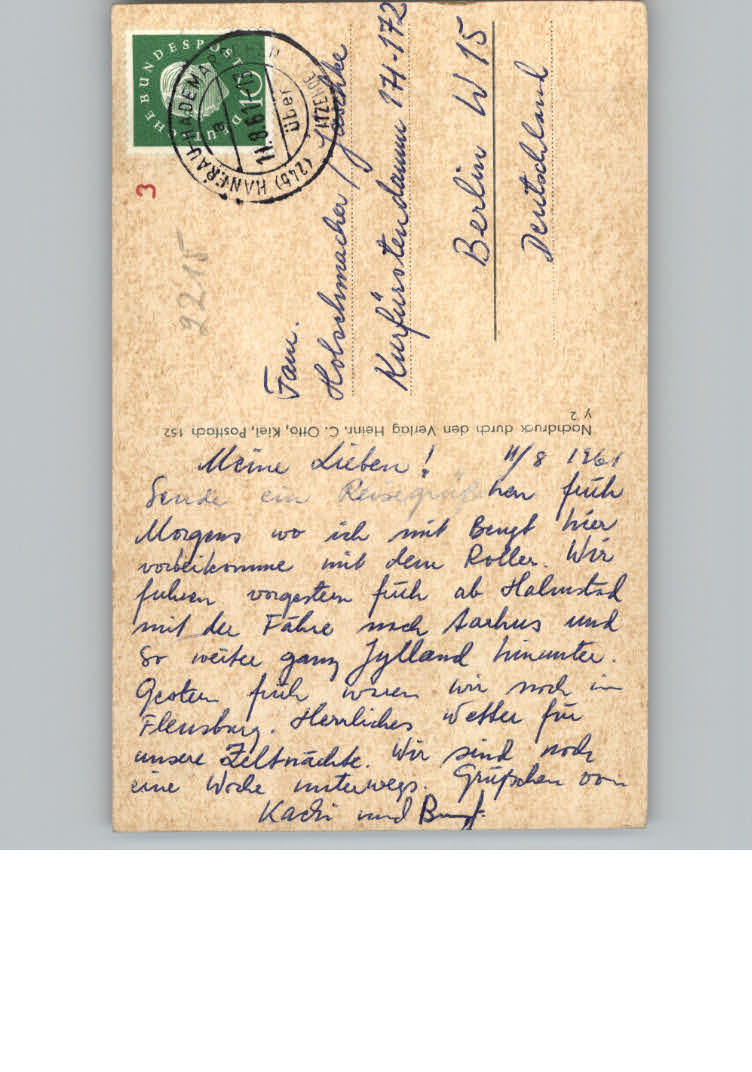 DEUTSCHE BUNDESPOST
10
(24b) HANERAU-HADEMARSCHEN
über
ITZEHOE
a
11.8.61
3
2215
Fam.
Holschmacher / Jaschke
Kurfürstendamm 171-172
Berlin W 15
Deutschland
Nachdruck durch den Verlag Heinr. C. Otto, Kiel, Postfach 152
y 2
Meine Lieben! 11/8 1961
Sende ein Reisegrüßchen früh
Morgens wo ich mit Bengt hier
vorbeikomme mit dem Roller. Wir
fuhren vorgestern früh ab Halmstad
mit der Fähre nach Aarhus und
so weiter ganz Jylland hinunter.
Gestern früh waren wir noch in
Flensburg. Herrliches Wetter für
unsere Zeltnächte. Wir sind noch
eine Woche unterwegs. Grüßchen von
und Bengt.